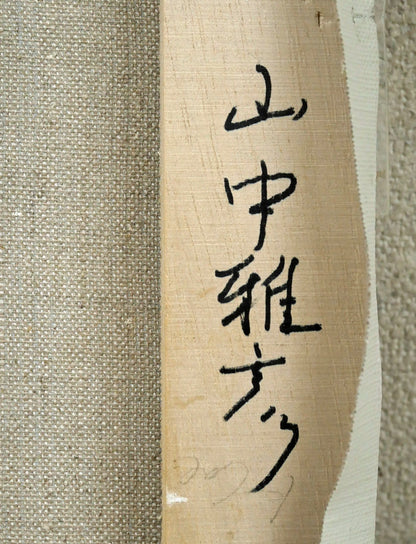 山中雅彦